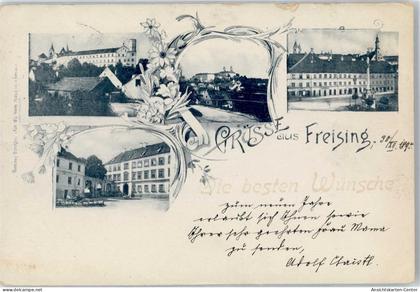 GRÜSSE aus Freising.
30/XII 1897.
Die besten Wünsche
zum neuen Jahre
erlaubt sich Ihnen sowie
Ihrer sehr geehrten Frau Mama
zu senden,
Adolf
Ansichtskarten-Center